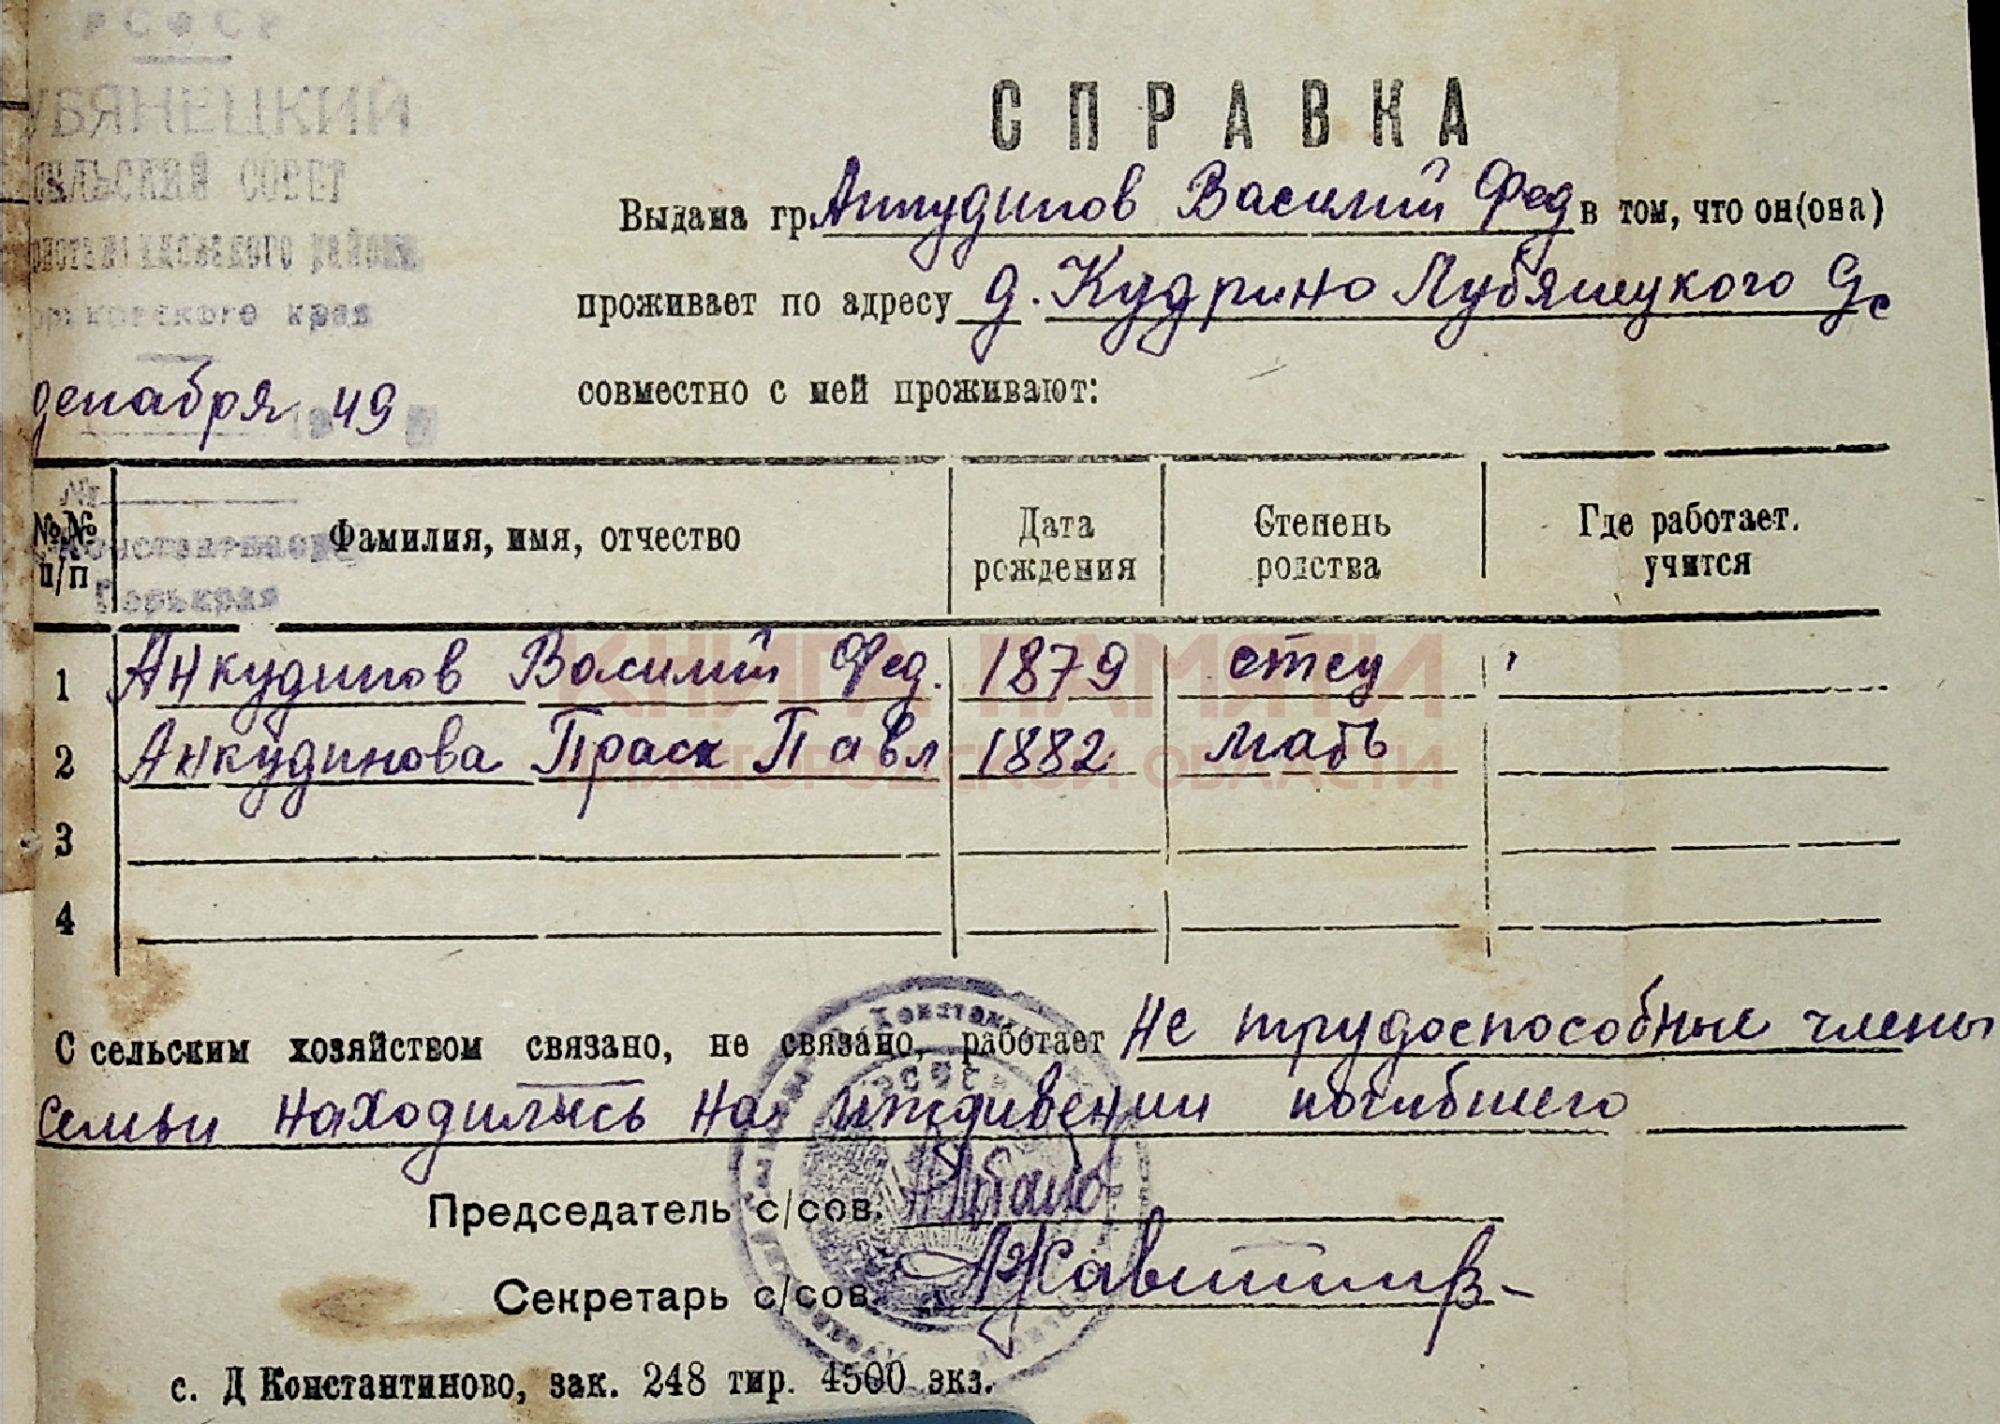 РСФСР
УБЯНЕЦКИЙ
СЕЛЬСКИЙ СОВЕТ
района
края
декабря 49
СПРАВКА
Выдана гр. Анкудинов Василий Фед в том, что он(она)
проживает по адресу д. Кудрино Лубянецкого С/с
совместно с ней проживают:
№
№№ п/п
Фамилия, имя, отчество
Дата рождения
Степень родства
Где работает. учится
Горькрая
1 Анкудинов Василий Фед. 1879 отец
2 Анкудинова Праск Павл 1882 мать
3
4
КНИГА ПАМЯТИ
НИЖЕГОРОДСКОЙ ОБЛАСТИ
С сельским хозяйством связано, не связано, работает Не трудоспособные члены
семьи находились на иждивении погибшего
РСФСР
Председатель с/сов.
Секретарь с/сов.
с. Д Константиново, зак. 248 тир. 4500 экз.